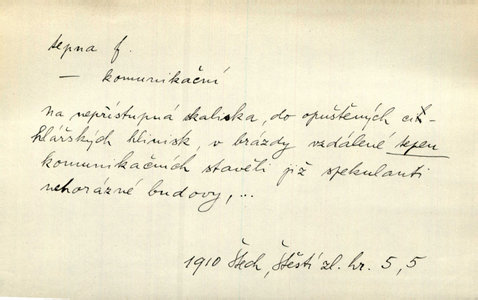 tepna f.
— komunikační
na nepřístupná skaliska, do opuštěných cih-
hlářských hlinisk, v brázdy vzdálené tepen
komunikačních stavěli již spekulanti
nehorázné budovy, ...
1910 Štech, Štěstí zl. hr. 5, 5